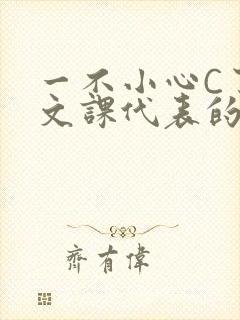 一不小心C
文課代表的
齊有偉